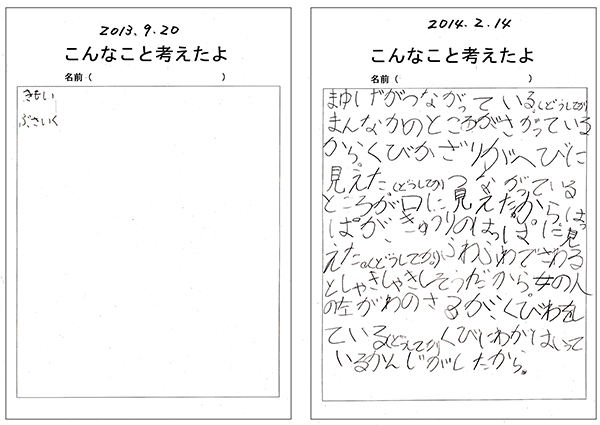 2013.9.20
こんなこと考えたよ
名前（　　　）
きもい
ぶさいく
2014.2.14
こんなこと考えたよ
名前（　　　）
まゆげがつながっている。(どうしてか)
まんなかのところがさがっている
から。くびかざりがへびに
見えた。(どうしてか)つながっている
ところが口に見えたから。はっ
ぱがきゅうりのはっぱに見
えた。(どうしてか)ふわふわでさわる
としゃきしゃきしそうだから。女の人
の左がわのさるがくびわをし
ている。(どうしてか)くびにわがはいって
いるかんじがしたから。